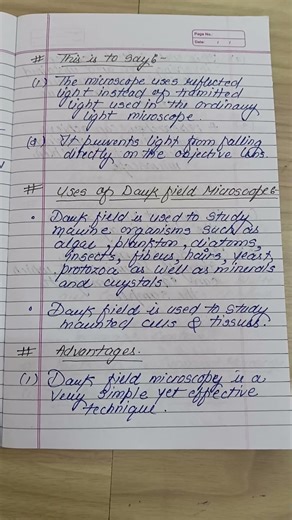 Page No.
Date
# This is to say :-
(1) The microscope uses reflected
light instead of tramitted
light used in the ordinary
light microscope.
(2) It prevents light from falling
directly on the objective lens.
# Uses of Dark field Microscope :-
• Dark field is used to study
marine organisms such as
algae, plankton, diatoms,
insects, fibers, hairs, yeast,
protozoa as well as minerals
and crystals.
• Dark field is used to study
mounted cells & tissues.
# Advantages.
(1) Dark field microscopy is a
very simple yet effective
technique.